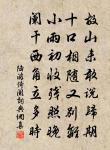 故山未敢说归期
十口相随又别离
小雨初收残照晚
阑干西角立多时
陆游倚阑词典网集